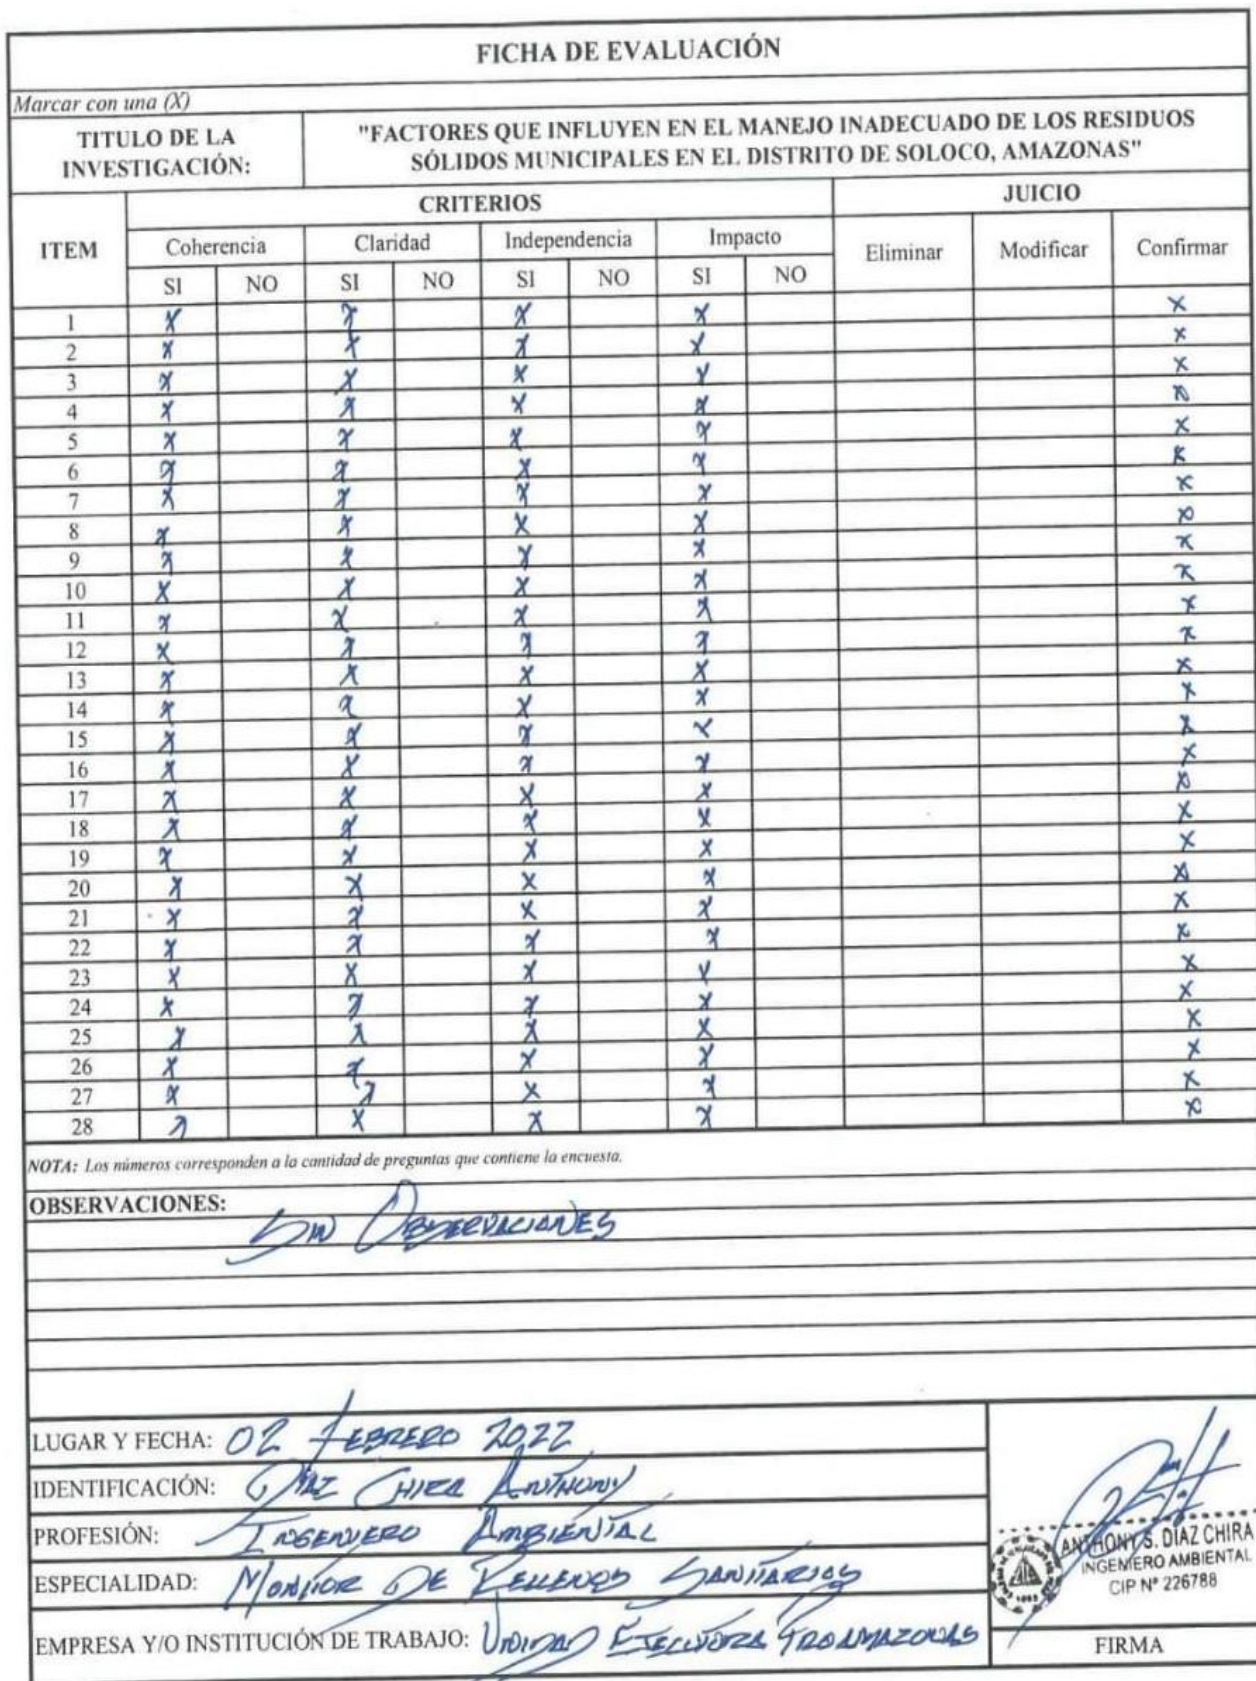 FICHA DE EVALUACIÓN
Marcar con una (X)
TITULO DE LA INVESTIGACIÓN: "FACTORES QUE INFLUYEN EN EL MANEJO INADECUADO DE LOS RESIDUOS SÓLIDOS MUNICIPALES EN EL DISTRITO DE SOLOCO, AMAZONAS"
ITEM CRITERIOS JUICIO
Coherencia Claridad Independencia Impacto Eliminar Modificar Confirmar
SI NO SI NO SI NO SI NO
1 X X X X X
2 X X X X X
3 X X X X X
4 X X X X X
5 X X X X X
6 X X X X X
7 X X X X X
8 X X X X X
9 X X X X X
10 X X X X X
11 X X X X X
12 X X X X X
13 X X X X X
14 X X X X X
15 X X X X X
16 X X X X X
17 X X X X X
18 X X X X X
19 X X X X X
20 X X X X X
21 X X X X X
22 X X X X X
23 X X X X X
24 X X X X X
25 X X X X X
26 X X X X X
27 X X X X X
28 X X X X X
NOTA: Los números corresponden a la cantidad de preguntas que contiene la encuesta.
OBSERVACIONES:
SIN OBSERVACIONES
LUGAR Y FECHA: 02 FEBRERO 2022
IDENTIFICACIÓN: DIAZ CHIRA ANTHONY
PROFESIÓN: INGENIERO AMBIENTAL
ESPECIALIDAD: MONITOR DE RELLENOS SANITARIOS
EMPRESA Y/O INSTITUCIÓN DE TRABAJO: UNIDAD EJECUTORA PROAMAZONAS
ANTHONY S. DIAZ CHIRA
INGENIERO AMBIENTAL
CIP N° 226788
FIRMA